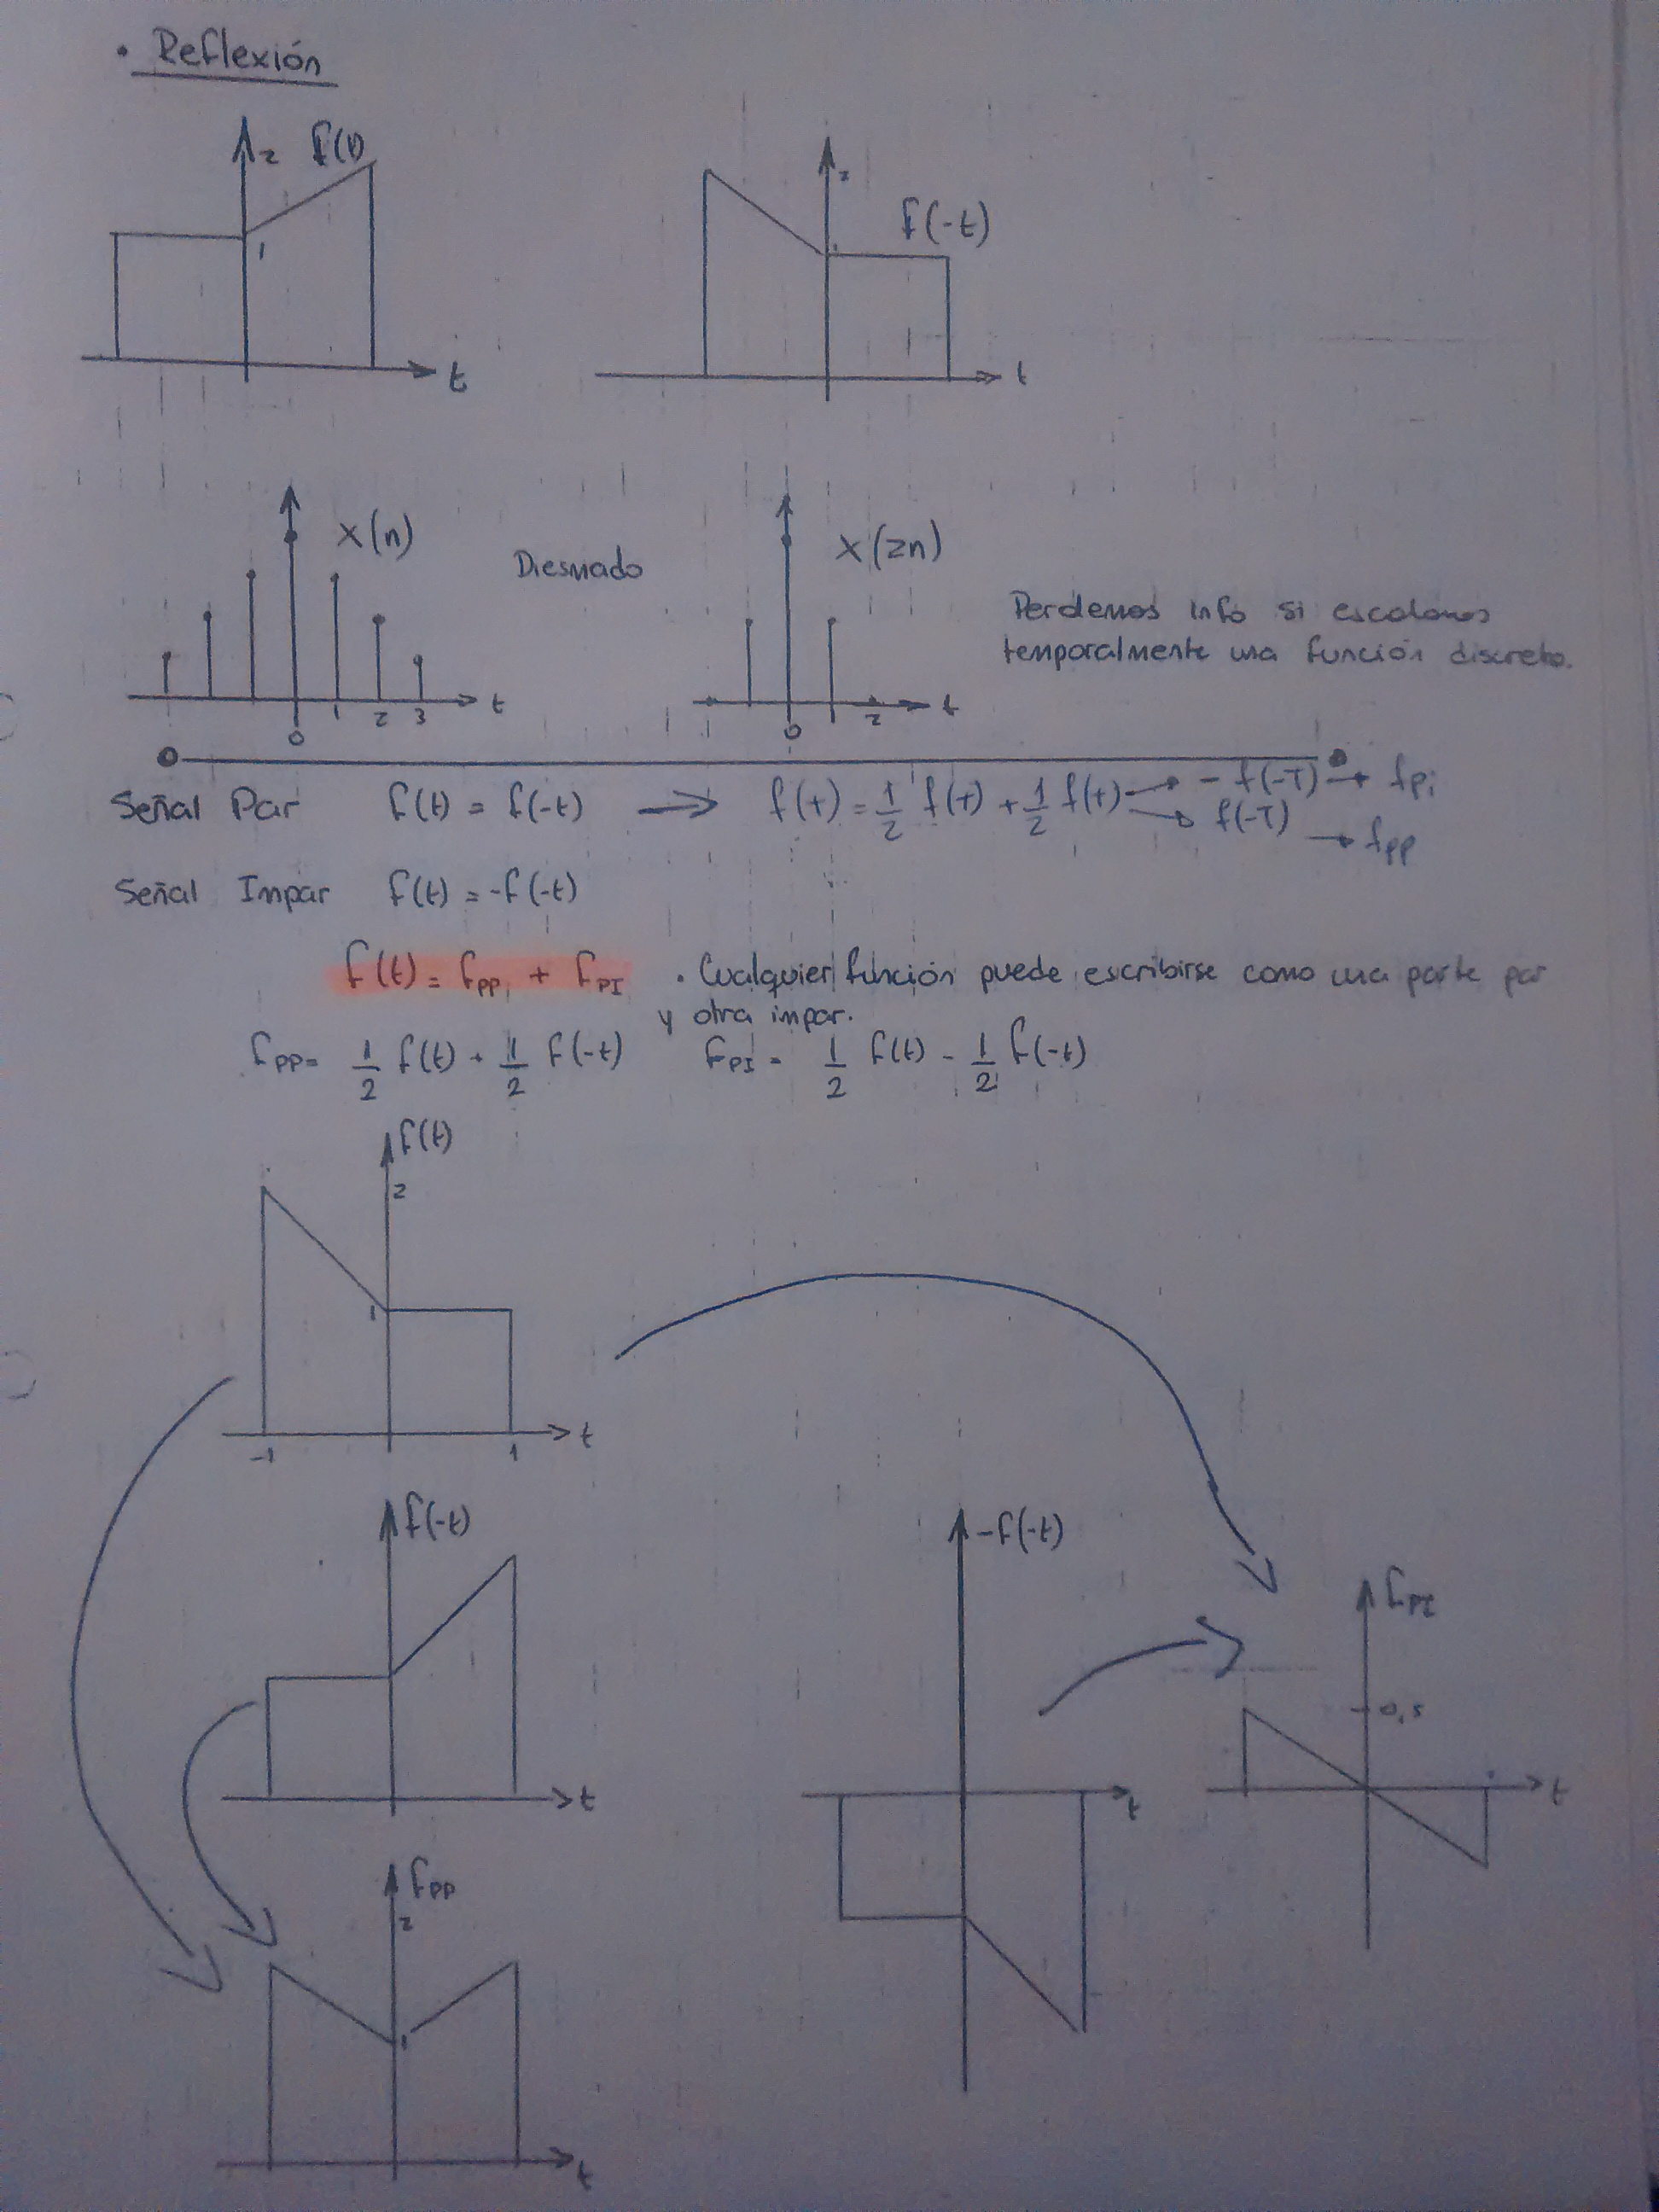 • Reflexión
2 f(t)
1
t
2
f(-t)
1
t
x(n)
t
0 1 2 3
Diesmado
x(2n)
t
0 2
Perdemos info si escalamos
temporalmente una función discreta.
Señal Par f(t) = f(-t) ⟹ f(t) = 1/2 f(t) + 1/2 f(t) → - f(-T) → fpi
→ f(-T) → fpp
Señal Impar f(t) = -f(-t)
f(t) = fPP + fPI • Cualquier función puede escribirse como una parte par
y otra impar.
fPP = 1/2 f(t) + 1/2 f(-t) fPI = 1/2 f(t) - 1/2 f(-t)
f(t)
2
1
-1 1 t
f(-t)
t
-f(-t)
t
fPI
0,5
t
fPP
2
1
t